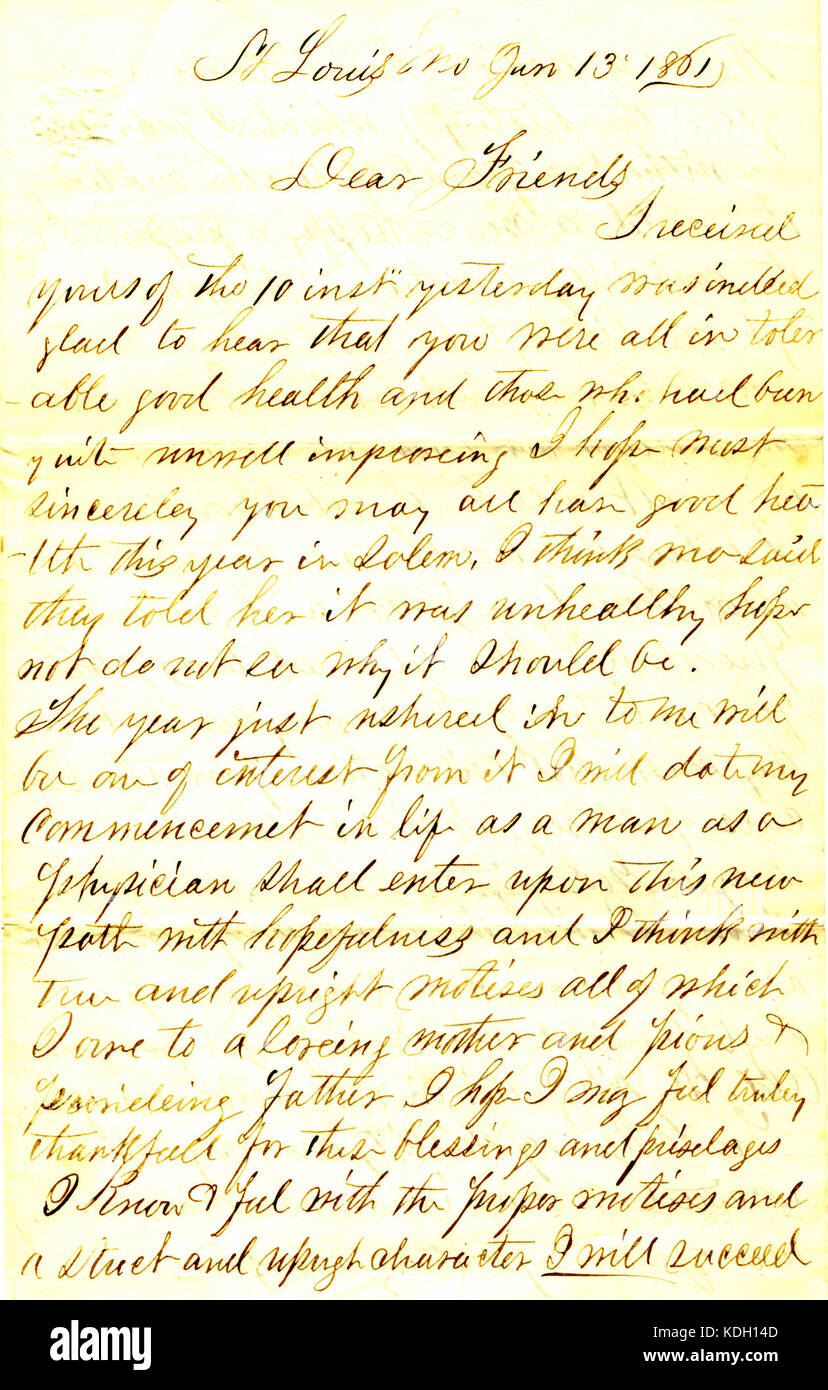 St Louis Mo Jan 13 1861
Dear Friends
I received
yours of the 10 inst yesterday was indeed
glad to hear that you were all in toler
-able good health and those who had been
quite unwell improveing I hope most
sincereley you may all have good hea
-lth this year in Salem, I think ma said
they told her it was unhealthy hope
not do not see why it should be.
The year just ushered in to me will
be one of interest from it I will date my
commencemet in life as a man as a
physician shall enter upon this new
path with hopefulness and I think with
true and upright motives all of which
I owe to a loveing mother and pious &
provideing father I hope I may feel truley
thankfull for these blessings and privelages
I know & feel with the proper motives and
a strict and uprigh character I will succeed
alamy
alamy
Image ID: KDH14D
www.alamy.com